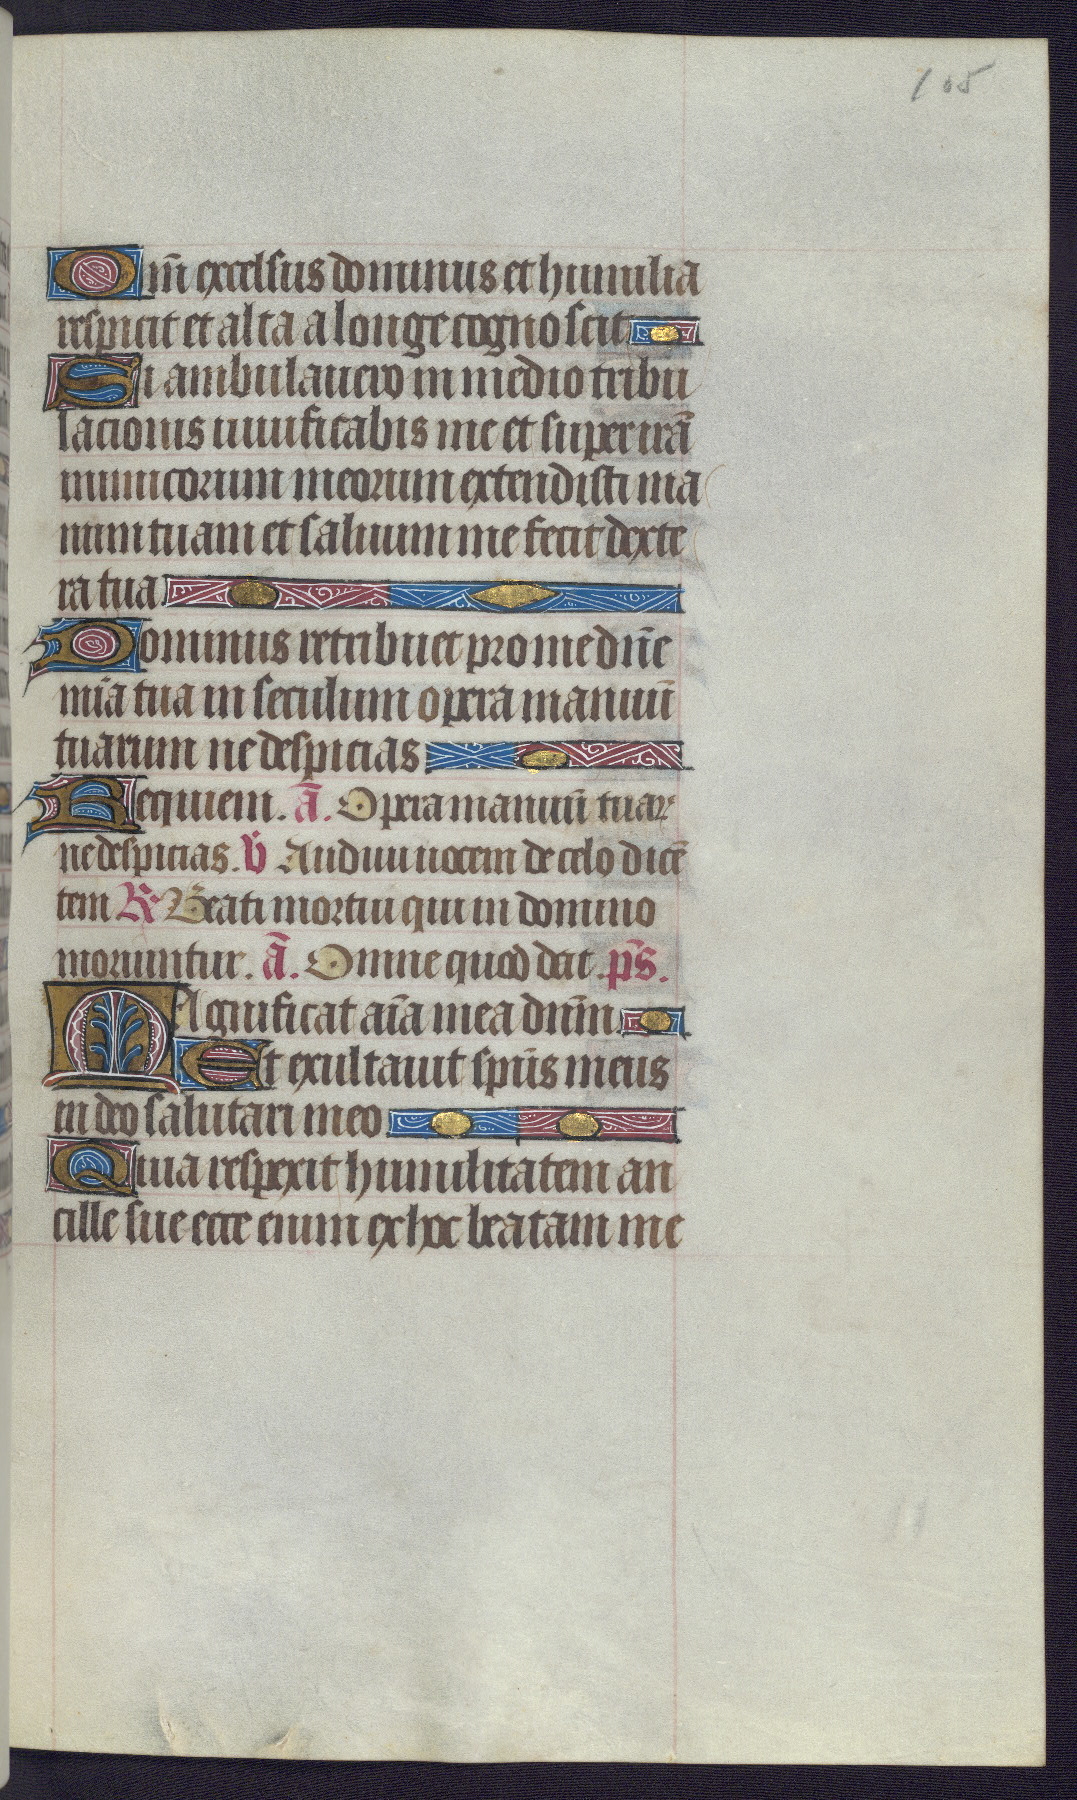 105
Qm̄ excelsus dominus et humilia
respicit et alta a longe cognoscit
Si ambulauero in medio tribu
lacionis uiuificabis me et super irā
inimicorum meorum extendisti ma
num tuam et saluum me fecit dexte
ra tua
Dominus retribuet pro me dn̄e
mīa tua in seculum opera manuū
tuarum ne despicias
Requiem. ā. Opera manuū tuar
ne despicias. v̄ Audiui uocem de celo dicē
tem R Beati mortui qui in domino
moriuntur. ā. Omne quod dat. p̄s.
MAgnificat aīa mea dn̄m.
Et exultauit sp̄us meus
in deo salutari meo
Quia respexit humilitatem an
cille sue ecce enim ex hoc beatam me